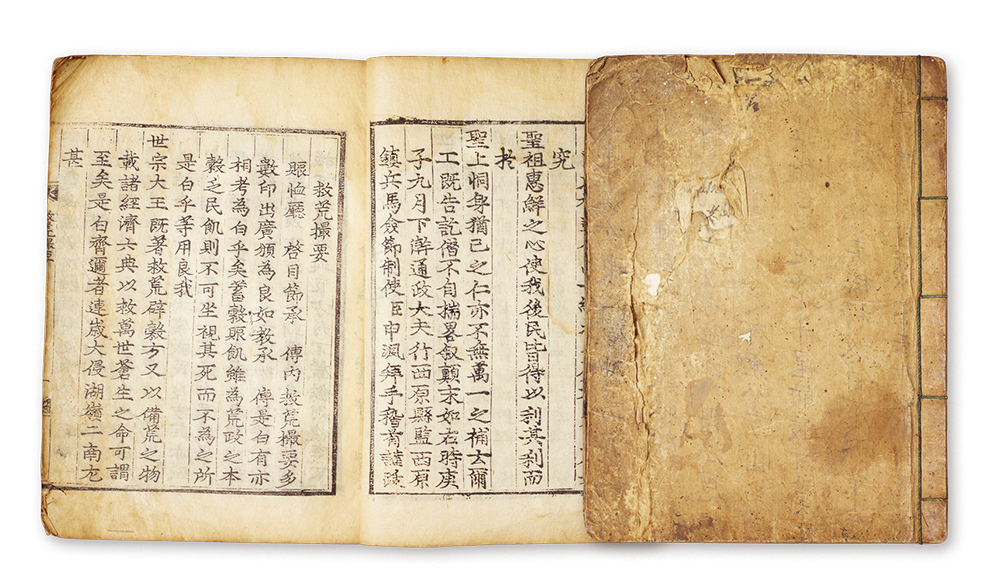 究
聖祖惠鮮之心使我後民皆得以利其利而
於
聖上恫身猶己之仁亦不無萬一之補云爾
工既告訖僭不自揣畧叙顚末如右時庚
子九月下澣通政大夫行西原縣監西原
鎮兵馬僉節制使臣申渢拜手稽首謹跋
救荒撮要
賑恤廳 啓目節承 傳內救荒撮要多
數印出廣頒為良如敎承 傳是白有亦
相考為白乎矣蓄穀賑飢雖為荒政之本
穀之民飢則不可坐視其死而不為之所
是白乎等用良我
世宗大王既著救荒辟穀方又以備荒之物
載諸經濟六典以救萬世蒼生之命可謂
至矣是白齊邇者連歲大侵湖嶺二南尤
甚